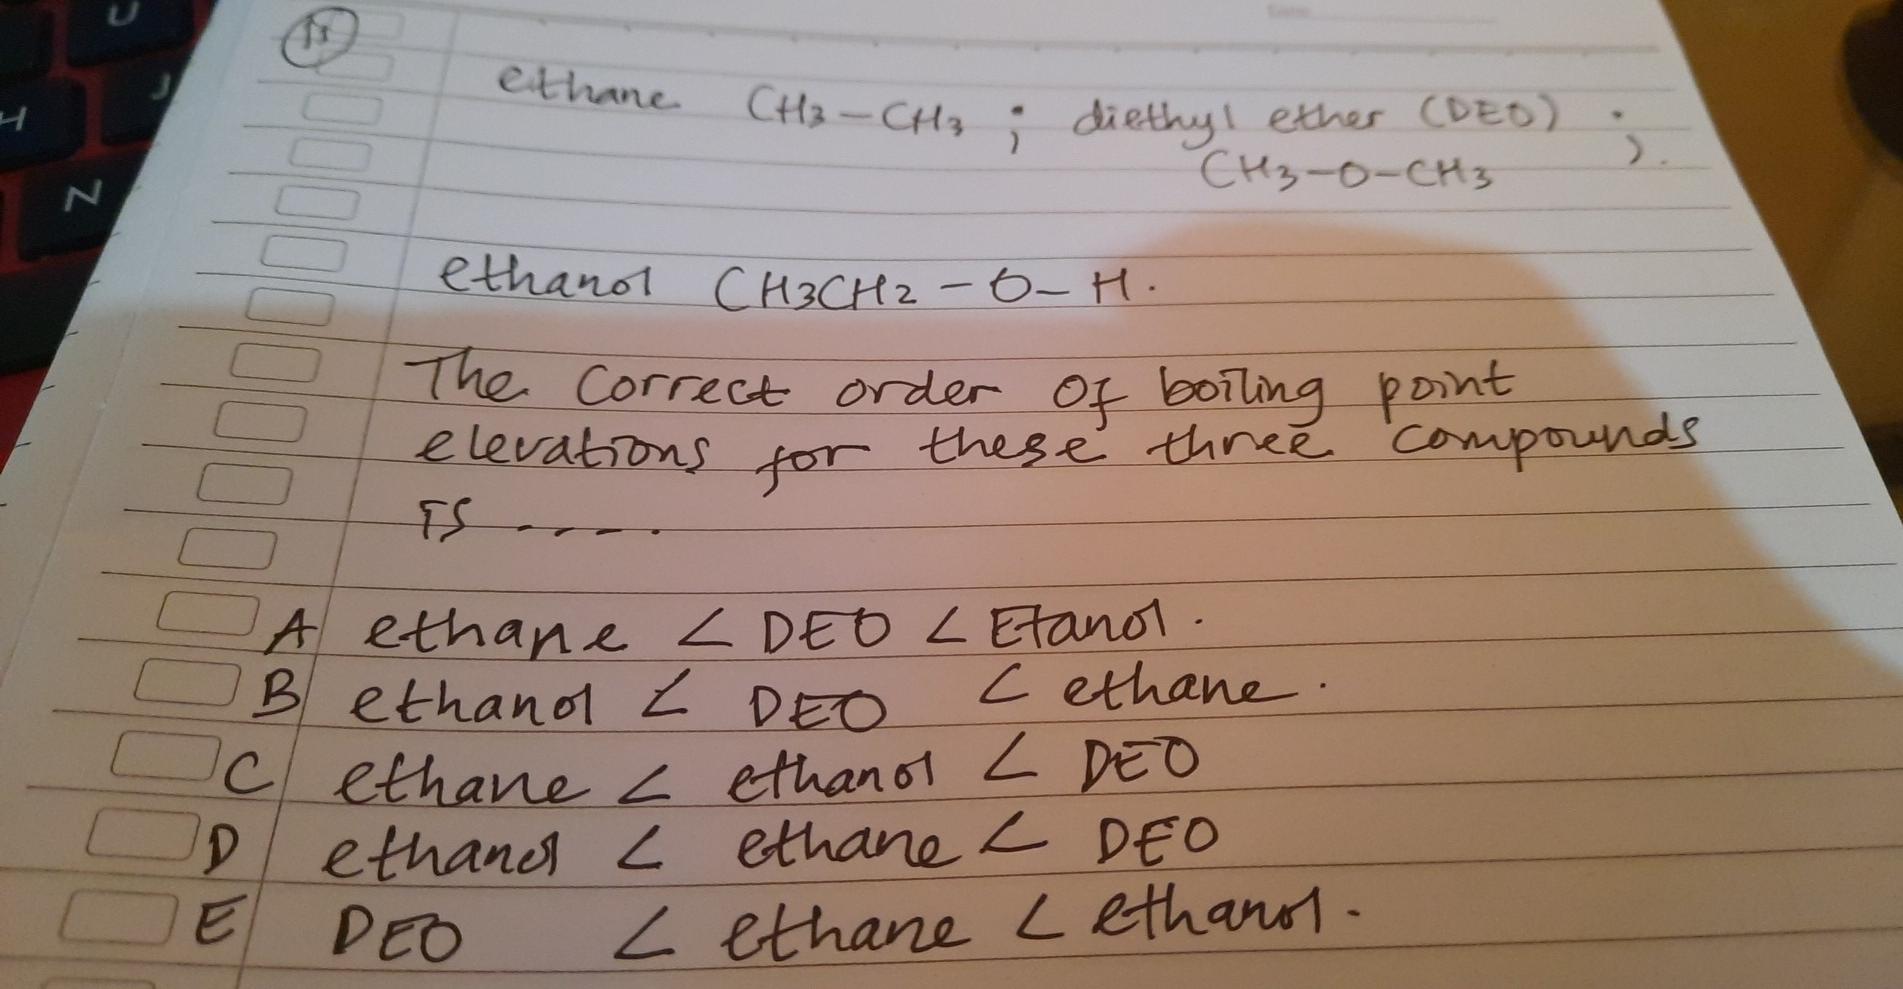 U
J
H
N
ethane CH3-CH3 ; diethyl ether (DEO) ;
CH3-O-CH3
ethanol CH3CH2-O-H.
The correct order of boiling point
elevations for these three compounds
is .....
A ethane < DEO < Etanol.
B ethanol < DEO < ethane.
C ethane < ethanol < DEO
D ethanol < ethane < DEO
E DEO < ethane < ethanol.